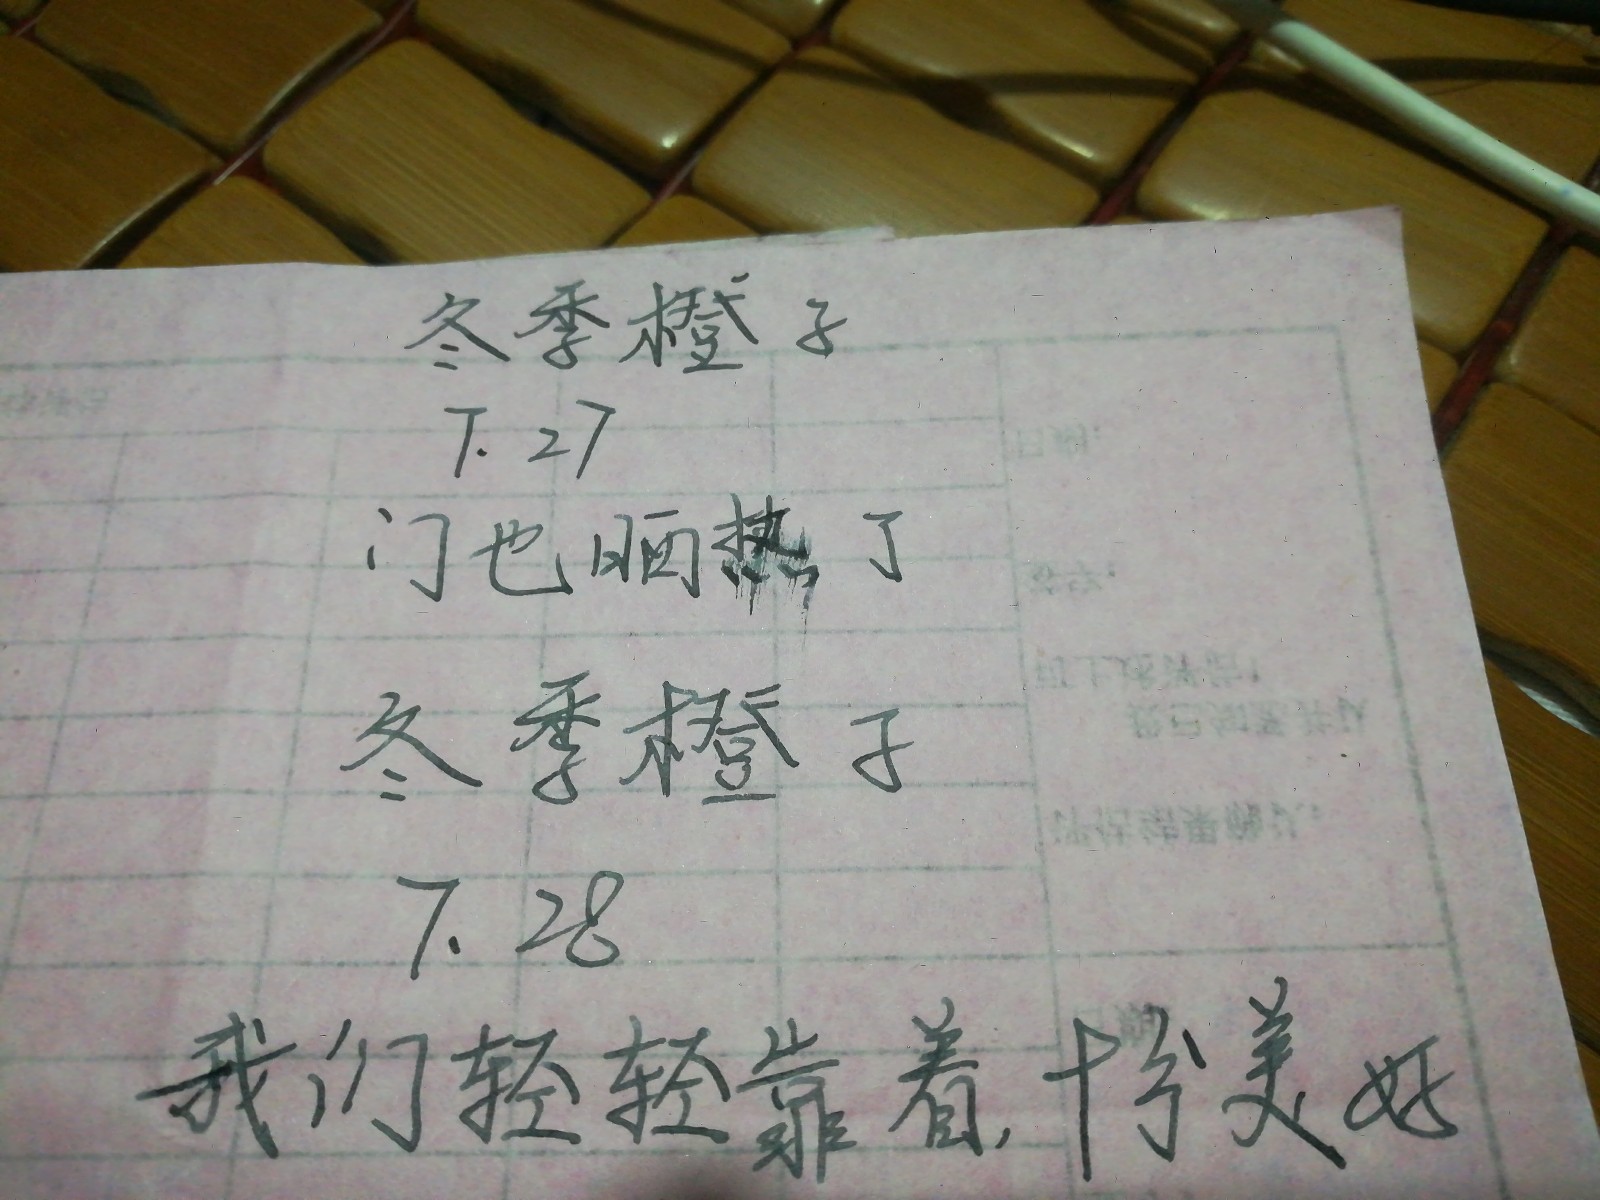 冬季橙子
7.27
门也晒热了
冬季橙子
7.28
我们轻轻靠着,十分美好